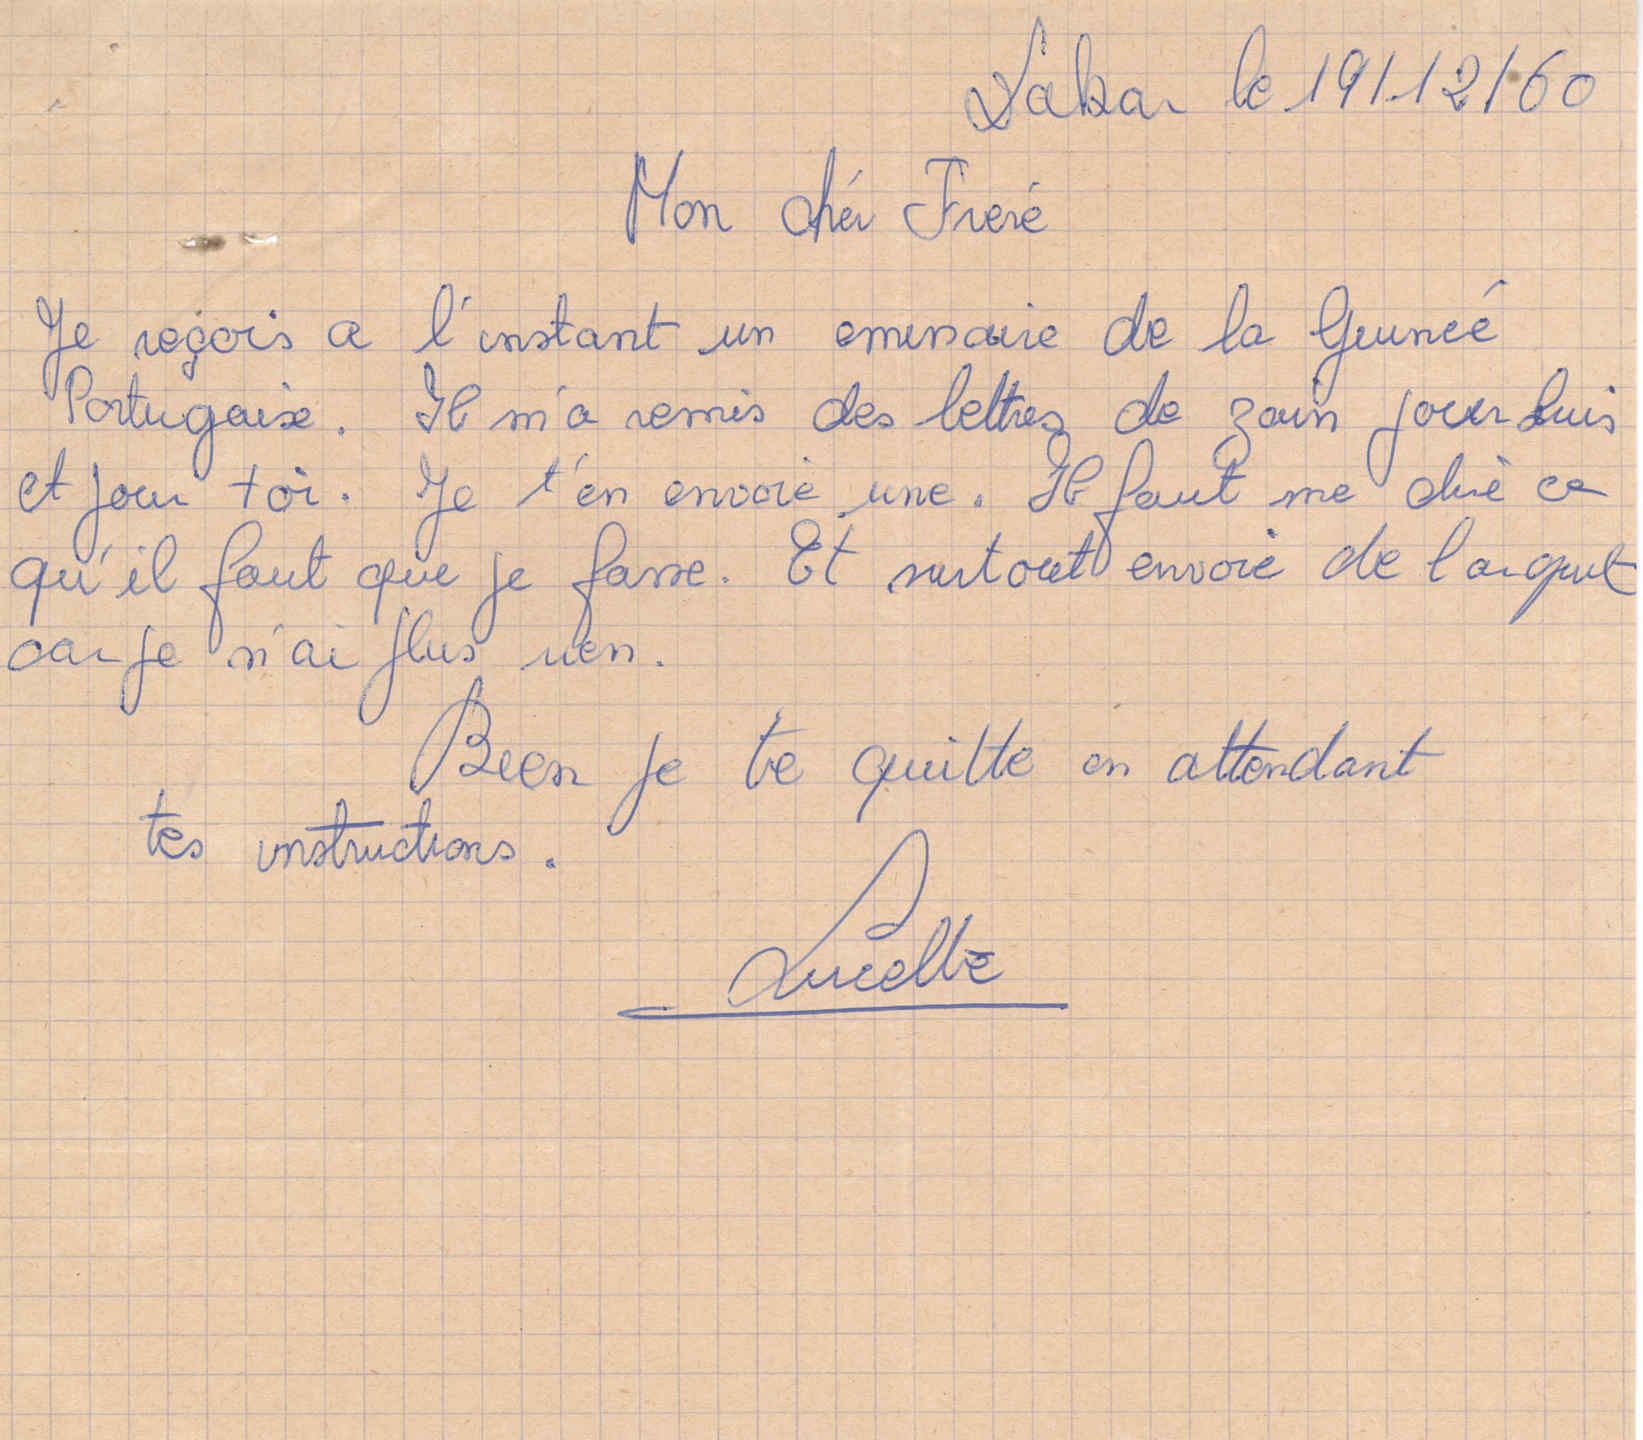 Dakar le 19/12/60
Mon chér Freré
Je reçois a l'instant un emissaire de la Guineé
Portugaise. Il m'a remis des lettres de zain pour Luis
et pour toi. Je t'en envoie une. Il faut me diré ce
qu'il faut que je fasse. Et surtout envoie de l'argent
car je n'ai plus rien.
Bien je te quitte en attendant
tes instructions.
Lucette